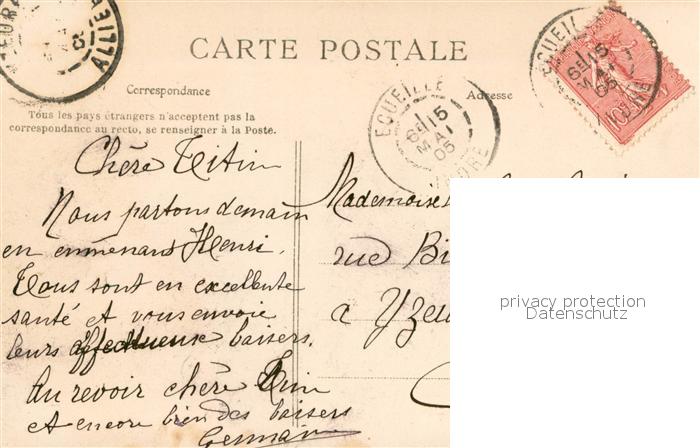 ALLIE
CARTE POSTALE
Correspondance
Adresse
Tous les pays étrangers n'acceptent pas la
correspondance au recto, se renseigner à la Poste.
ECUEILLÉ
15
MAI
05
INDRE
ECUEILLÉ
15
MAI
05
INDRE
10
Chère Titin
Nous partons demain
en emmenant Henri.
Tous sont en excellente
santé et vous envoie
leurs affectueux baisers.
Au revoir chère
et encore bien des baisers
Germain
Mademoise
rue Bi
à Yzeu
privacy protection
Datenschutz